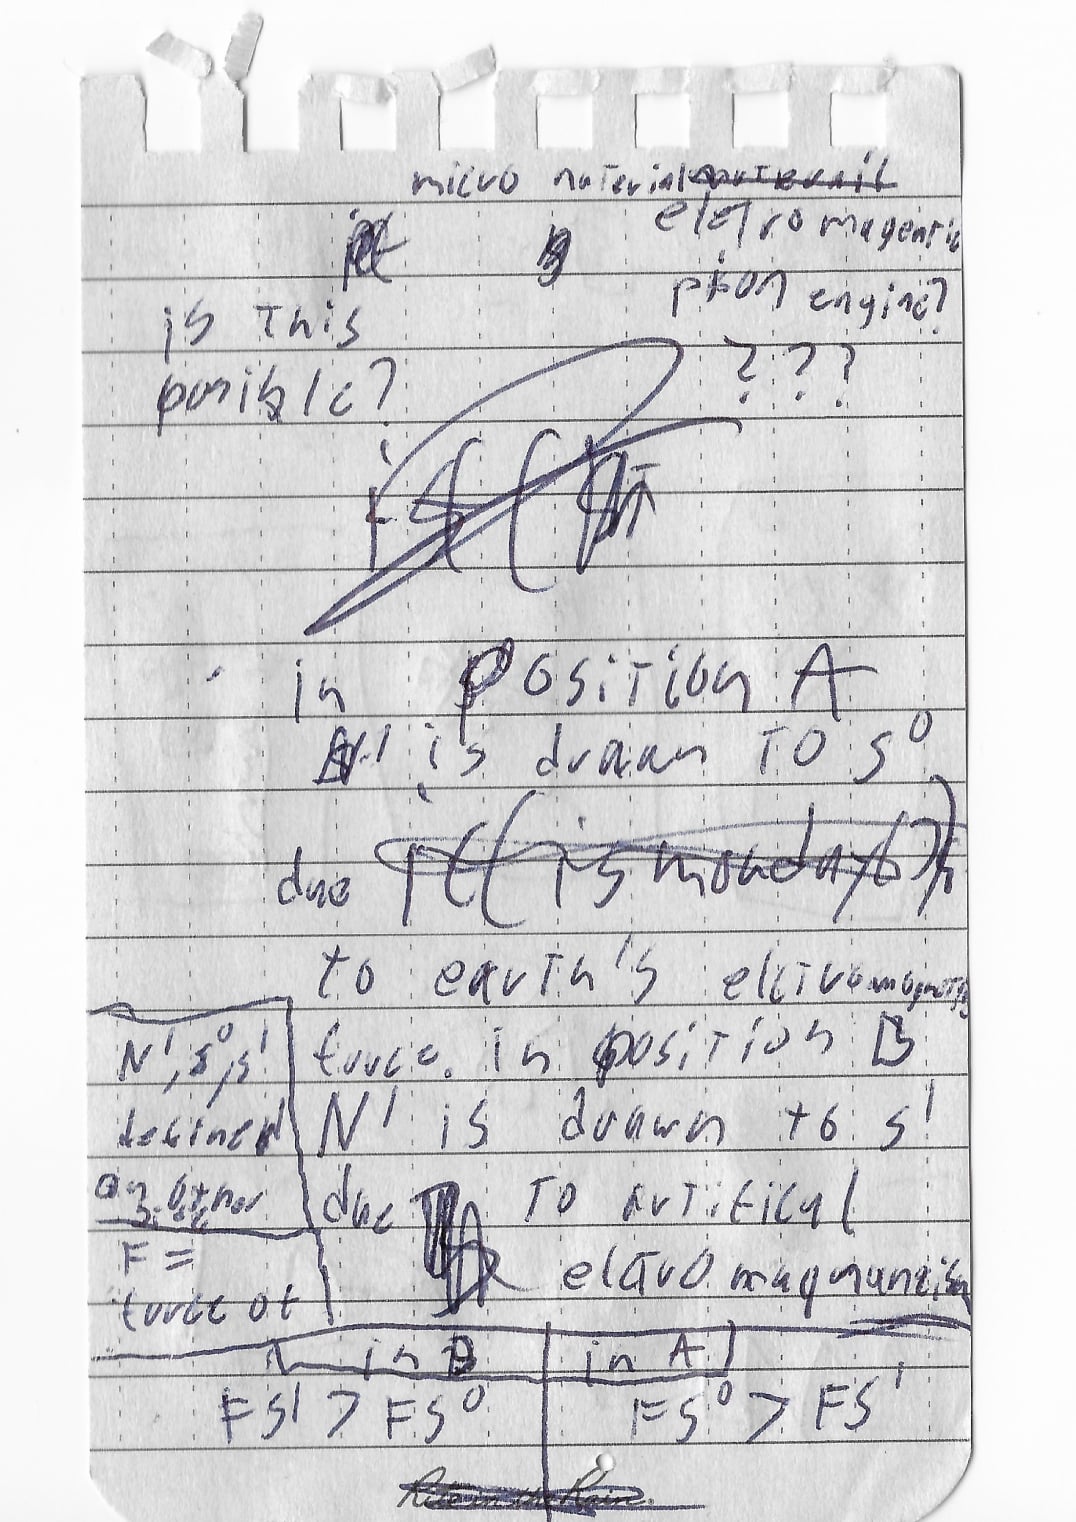 micro material
eletro magentic
pison engine?
is this
posible?
???
in position A
N' is drawn TO s⁰
due
to earth's elctromagnetic
force. in position B
N' is drawn to s'
due TO artifical
elctro magnanzism
N', s⁰, s'
defined
on other
side
F =
force of
in B
in A
FS' > FS⁰
FS⁰ > FS'
Rite in the Rain.